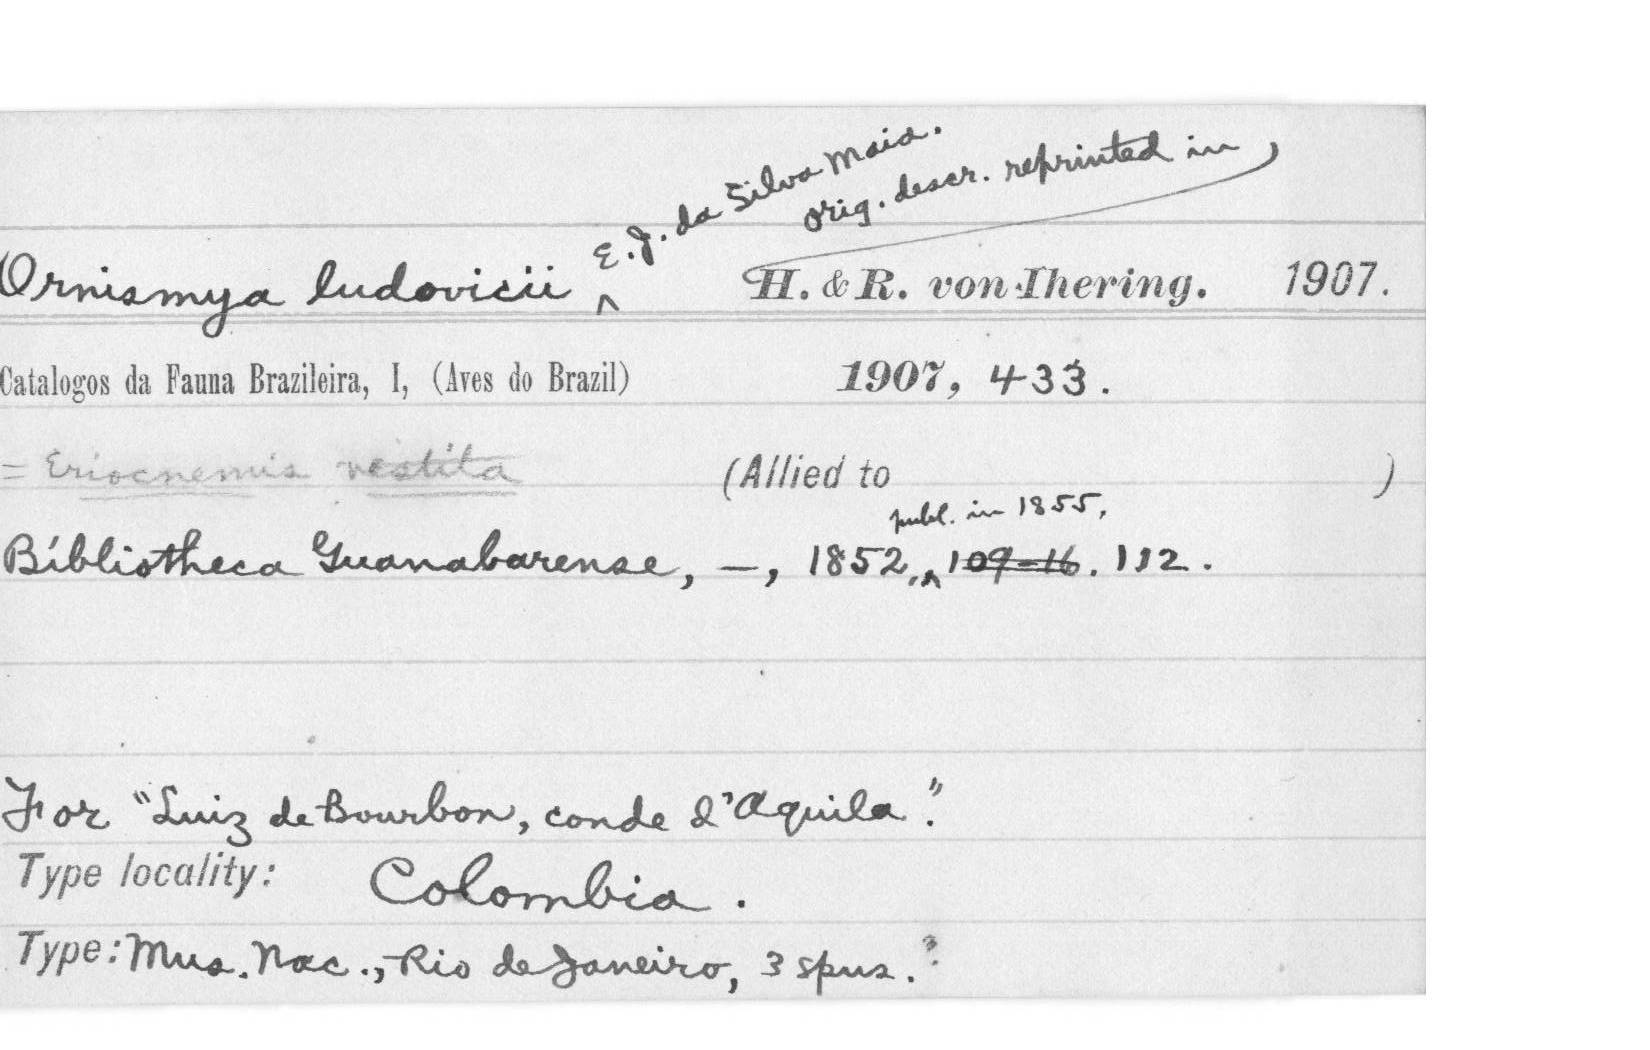 E. J. da Silva Maia.
orig. descr. reprinted in
Ornismya ludovicii ^ H. & R. von Ihering. 1907.
Catalogos da Fauna Brazileira, I, (Aves do Brazil) 1907, 433.
= Eriocnemis vestita (Allied to )
publ. in 1855,
Bibliotheca Guanabarense, —, 1852, ^ 109-16. 112.
For "Luiz de Bourbon, conde d'Aquila."
Type locality: Colombia.
Type: Mus. Nac., Rio de Janeiro, 3 spns.?